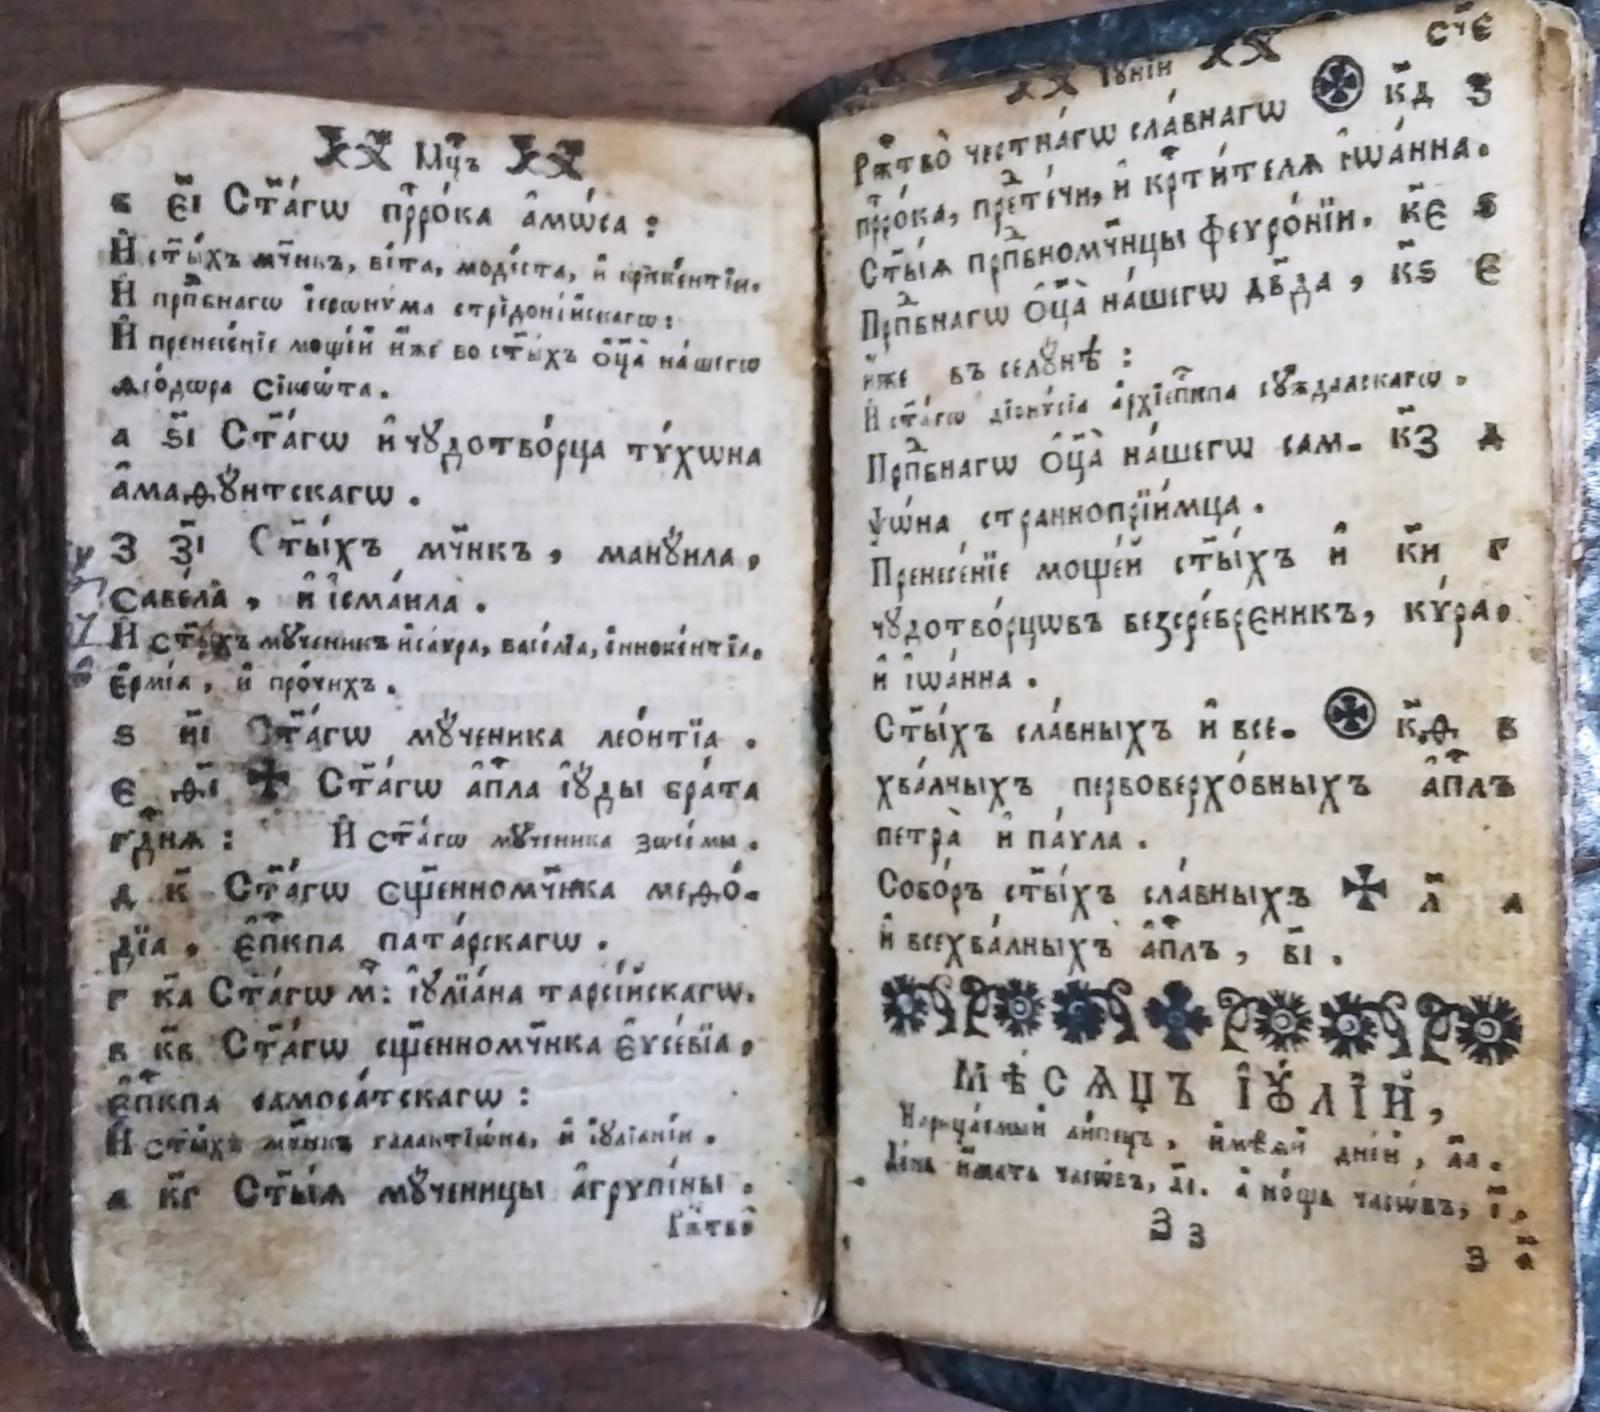 Мц҃ъ
в е҃і Ст҃а́гѡ прⷪ҇ро́ка а҆мѡ́са :
И҆ ст҃ы́хъ мч҃нкъ, ві́та, моде́ста, и҆ крискентїи.
И҆ прпⷣбнагѡ і҆еронѵма стрїдоні́йскагѡ:
И҆ пренесе́нїе моще́й и҆́же во ст҃ы́хъ ѻ҆ц҃а̀ на́шегѡ
ѳео́дѡра сікеѡ́та .
а ѕ҃і Ст҃а́гѡ и҆ чꙋдотво́рца тѵ́хѡна
а҆маѳꙋ́нтскагѡ .
З з҃і Ст҃ы́хъ мч҃нкъ , манꙋ́ила ,
саве́ла , и҆ і҆сма́ила .
И҆ ст҃ы́хъ мꙋ́ченикъ и҆са́ѵра, васе́лїа, і҆ннокентїа,
є҆рмі́а , и҆ про́чихъ .
ѕ и҃і Ст҃а́гѡ мꙋ́ченика лео́нтїа .
є ѳ҃і Ст҃а́гѡ а҆пⷭ҇ла і҆ꙋ́ды бра́та
гдⷭ҇нѧ : И҆ ст҃а́гѡ мꙋ́ченика зѡсі́мы .
д к҃ Ст҃а́гѡ сщ҃енномч҃нка меѳо́-
дїа , є҆пⷭ҇кпа пата́рскагѡ .
г к҃а Ст҃а́гѡ мⷱ҇: і҆ꙋлїа́на тарсі́йскагѡ.
в к҃в Ст҃а́гѡ сщ҃енномч҃нка є҆ѵсе́вїа ,
є҆пⷭ҇кпа самоса́тскагѡ :
И҆ ст҃ы́хъ мч҃нкъ галактїѡ́на, и҆ і҆ꙋлїані́и .
а к҃г Ст҃ы́ѧ мꙋ́ченицы а҆грѵпі́ны .
Ржⷭ҇тво̀
і҆ꙋ́нїй сч҃є
Ржⷭ҇тво̀ честна́гѡ сла́внагѡ к҃д З
прⷪ҇ро́ка, прⷣте́чи, и҆ крⷭ҇ти́телѧ і҆ѡа́нна.
Ст҃ы́ѧ прпⷣбномч҃нцы феѵро́нїи. к҃є ѕ
Прпⷣбнагѡ ѻ҆ц҃а̀ на́шегѡ дв҃да , к҃ѕ є
и҆́же въ селꙋ́нѣ :
И҆ ст҃а́гѡ дїонѵ́сїа а҆рхїепⷭ҇кпа сꙋ́ждалскагѡ .
Прпⷣбнагѡ ѻ҆ц҃а̀ на́шегѡ сам- к҃з д
ѱѡ́на страннопрїи́мца .
Пренесе́нїе моще́й ст҃ы́хъ и҆ к҃и г
чꙋдотво́рцѡвъ безсре́бреникъ, кѵ́ра,
и҆ і҆ѡа́нна .
Ст҃ы́хъ сла́вныхъ и҆ все- к҃ѳ в
хва́лныхъ первоверхо́вныхъ а҆пⷭ҇лъ
петра̀ и҆ па́ѵла .
Собо́ръ ст҃ы́хъ сла́вныхъ л҃ а
и҆ всехва́лныхъ а҆пⷭ҇лъ , в҃і .
МѢСѦЦЪ І҆ꙊЛЇЙ,
Нарица́емый ли́пецъ , и҆мѣ́ѧй дне́й , л҃а .
День и҆́мать часѡ́въ, д҃і. а҆ но́щь часѡ́въ, і҃ .
Зз
З а҃